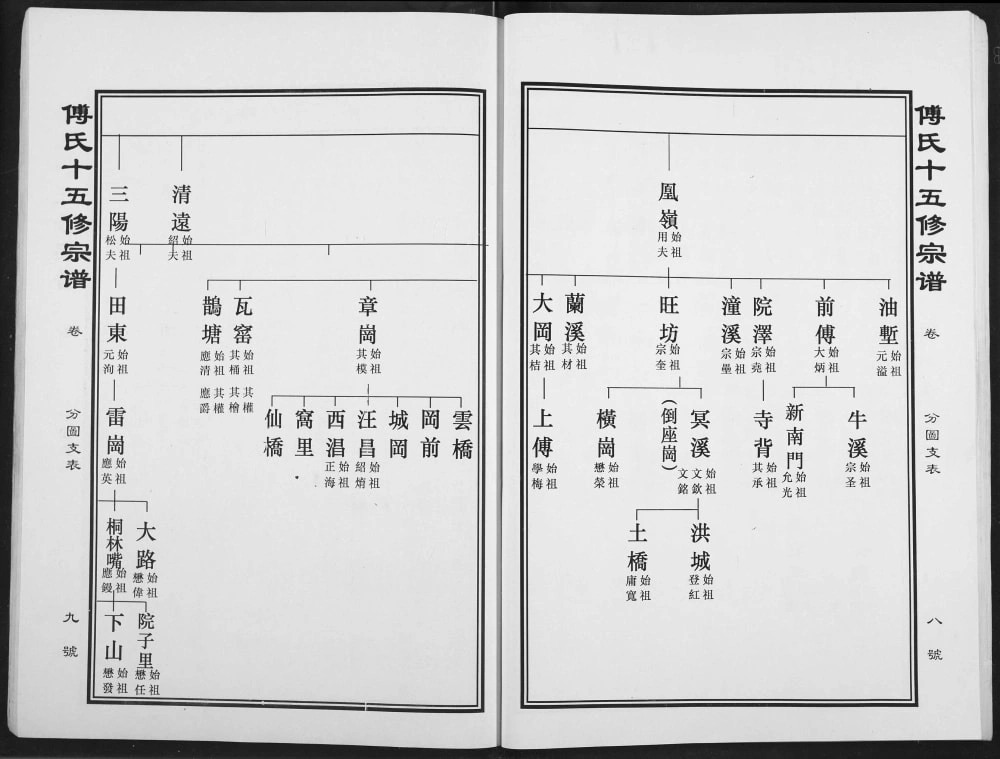 傅氏十五修宗谱
卷
分圖支表
八號
凰嶺
始祖用夫
油塹
始祖元溢
前傅
始祖大炳
院澤
始祖宗堯
潼溪
始祖宗壘
旺坊
始祖宗奎
蘭溪
始祖其材
大岡
始祖其桔
牛溪
始祖宗圣
新南門
始祖允光
寺背
始祖其承
冥溪
始祖文歛文銘
(倒座崗)
橫崗
始祖懋榮
上傅
始祖學梅
洪城
始祖登紅
土橋
始祖庸寬
傅氏十五修宗谱
卷
分圖支表
九號
清遠
始祖紹夫
三陽
始祖松夫
章崗
始祖其模
瓦窰
始祖其桶其權其檜
鵲塘
始祖應清其權應爵
田東
始祖元洵
雲橋
岡前
城岡
汪昌
始祖紹焴
西淐
始祖正海
窩里
仙橋
雷崗
始祖應英
大路
始祖懋偉
桐林嘴
始祖應鏝
院子里
始祖懋任
下山
始祖懋發